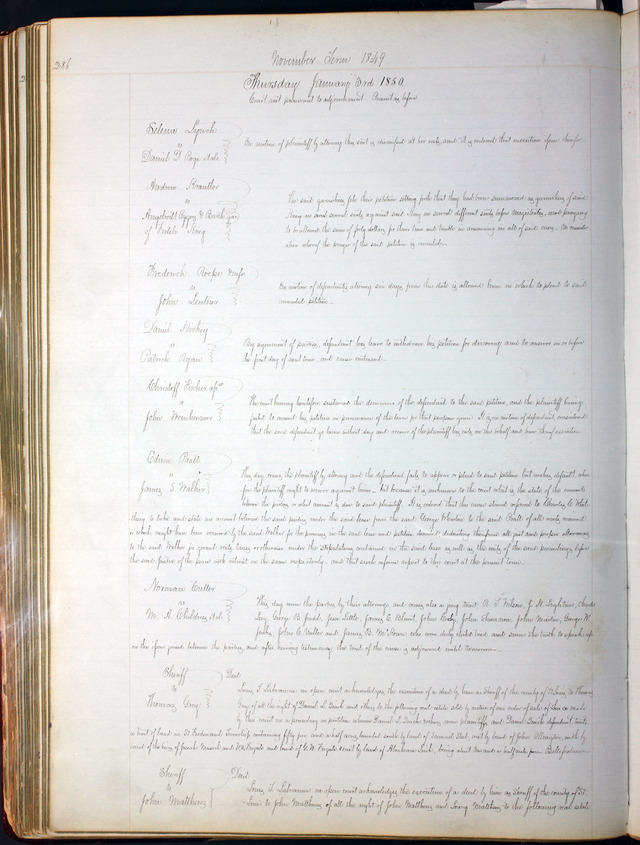 286
November Term 1849
Thursday January 3rd 1850
Court met pursuant to adjournment. Present as before
Selena Lynch
vs
Daniel D. Page et als
On motion of plaintiff by attorney this suit is dismissed at her costs, and it is ordered that execution issue therefor
Andrew Krautler
vs
of Fidele King
The said garnishees file their petition setting forth that they had been summoned as garnishees of said
King in and several suits against said King in several different suits before magistrates, and praying
to be allowed the sum of forty dollars for their time and trouble in answering in all of said cases. On consideration
whereof the prayer of the said petition is
Frederick
vs
John
On motion of defendants attorney six days from this date is allowed him in which to plead to said
amended petition.
Daniel
vs
Patrick Ryan
By agreement of parties, defendant has leave to withdraw his petition for discovery and to answer on or before
the first day of next term, and cause continued.
Christoff Fischer
vs
John
The court having heretofore sustained the demurrer of the defendant to the said petition, and the plaintiff having
failed to amend his petition in pursuance of the leave for that purpose given. It is on motion of defendant, considered
that the said defendant go hence without day and recover of the plaintiff his costs in this behalf and have thereof execution
Edwin Pratt
vs
James S. Walker
This day comes the plaintiff by attorney and the defendant fails to appear or plead to said petition but makes default, where
fore the plaintiff ought to recover against him. but because it is unknown to the court what is the state of the accounts
between the parties, or what amount is due to said plaintiff. It is ordered that this cause stand referred to Charles C. Whit
to take and state an account between the said parties under the said lease from the said George to the said Pratt of all rents
or which ought to have been received by the said Walker for the premises in the said lease and petition named deducting therefrom all just and proper allowances
to the said Walker for ground rents, taxes, or otherwise under the stipulations contained in the said lease as well as the costs of the said proceedings before
the said Justice of the peace with interest on the same respectively and that such referee report to this court at the present term.
Norman Cutter
vs
M. A. Childress et al.
This day come the parties by their attorneys and comes also a jury to wit: A. T. Wilson, J. H. Lightner, Charles
Levy, George B. Judd, Jesse Little, James C. John John John George W.
John C. Vuller and James B. who were duly elected tried and sworn the truth to speak upon
on the issue joined between the parties, and after hearing testimony the rest of the cause is adjourned until tomorrow.
Sheriff
to
Thomas Gray
Deed
Louis T. Labeaume in open court acknowledges the execution of a deed by him as Sheriff of the county of St Louis to Thomas
Gray of all the right of Daniel L. Quick and others to the following real estate sold by virtue of an order of sale of
by this court in a proceeding in partition wherein Daniel L. Quick are plaintiffs and Daniel Quick defendant to wit:
a tract of land in St Ferdinand Township containing fifty five and a half acres bounded north by land of east by land of John south by
land of and land of G. W. west by land of Abraham
Sheriff
to
John Matthews
Deed
Louis T. Labeaume in open court acknowledges the execution of a deed by him as Sheriff of the county of St.
Louis to John Matthews of all the right of John Matthews and Matthews to the following real estate